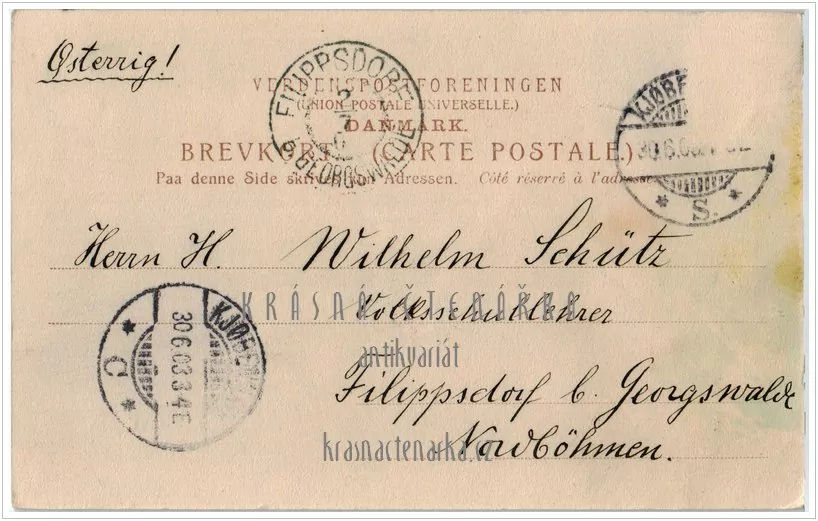 Østerrig!
VERDENSPOSTFORENINGEN
(UNION POSTALE UNIVERSELLE.)
DANMARK.
BREVKORT. (CARTE POSTALE.)
Paa denne Side skrives kun Adressen. Côté réservé à l'adresse
FILIPPSDORF
b. GEORGSWALDE
KJØBE
30.6.03
S.
Herrn H. Wilhelm Schütz
KRÁSNÁ ČTENÁŘKA
Volksschullehrer
antikvariát
KJØBEN
30.6.03.3-4E
C
Filippsdorf b. Georgswalde
krasnactenarka.cz
Nordböhmen.